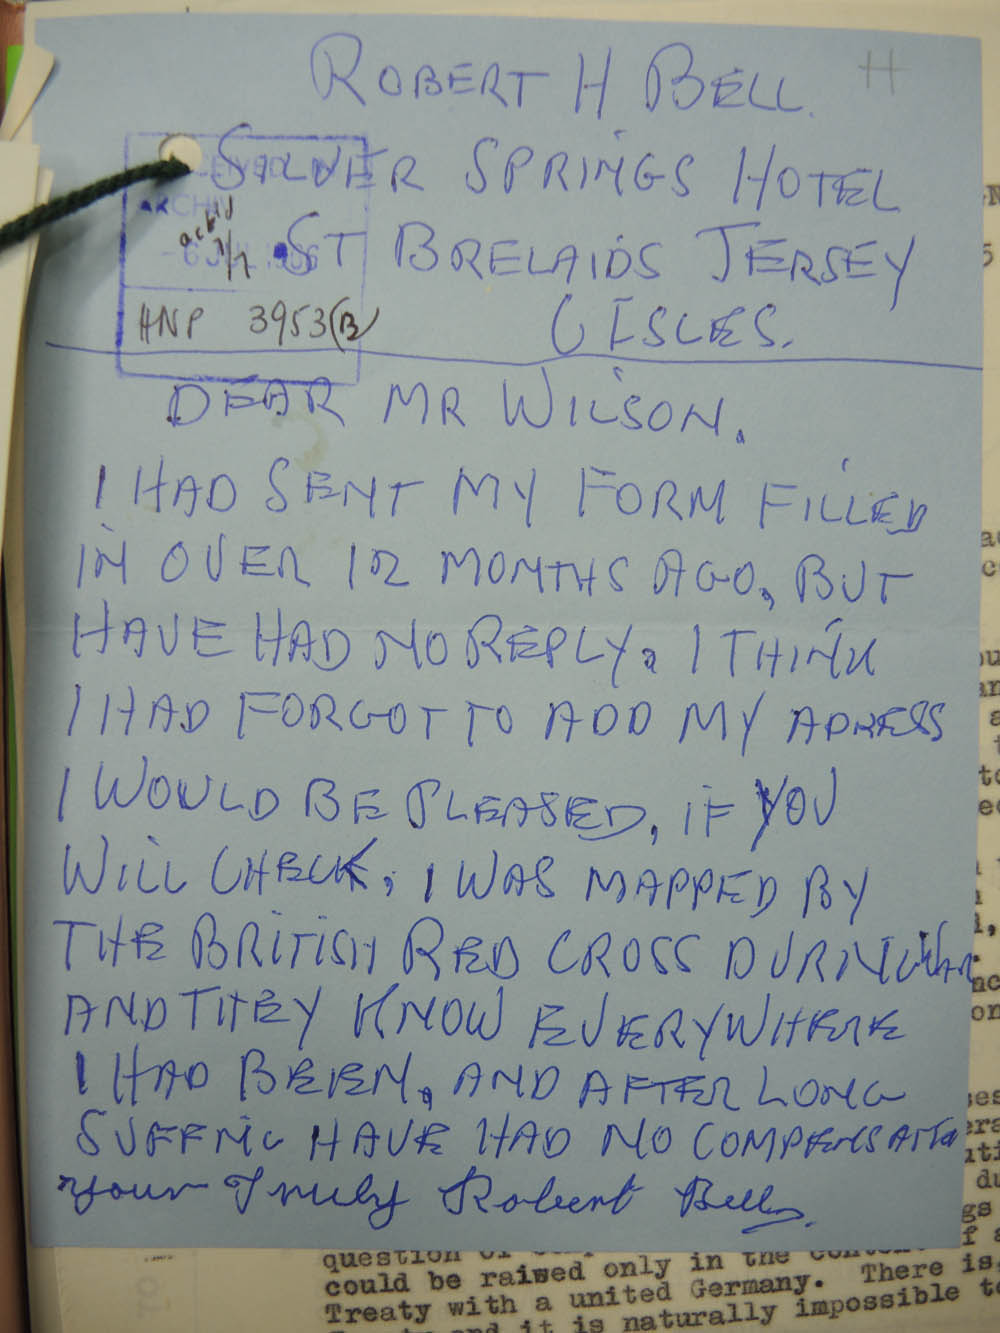 ROBERT H BELL. H
SILVER SPRINGS HOTEL
ARCHIV
ackd
7/7
ST BRELAIDS JERSEY
HNP 3953(B)
C ISLES.
DEAR MR WILSON.
I HAD SENT MY FORM FILLED
IN OVER 12 MONTHS AGO, BUT
HAVE HAD NO REPLY. I THINK
I HAD FORGOT TO ADD MY ADRESS
I WOULD BE PLEASED, IF YOU
WILL CHECK, I WAS MAPPED BY
THE BRITISH RED CROSS DURING WAR
AND THEY KNOW EVERYWHERE
I HAD BEEN, AND AFTER LONG
SUFFNG HAVE HAD NO COMPENSATIO
your Truly Robert Bell
question of
could be raised only in the
Treaty with a united Germany. There is,
and it is naturally impossible to